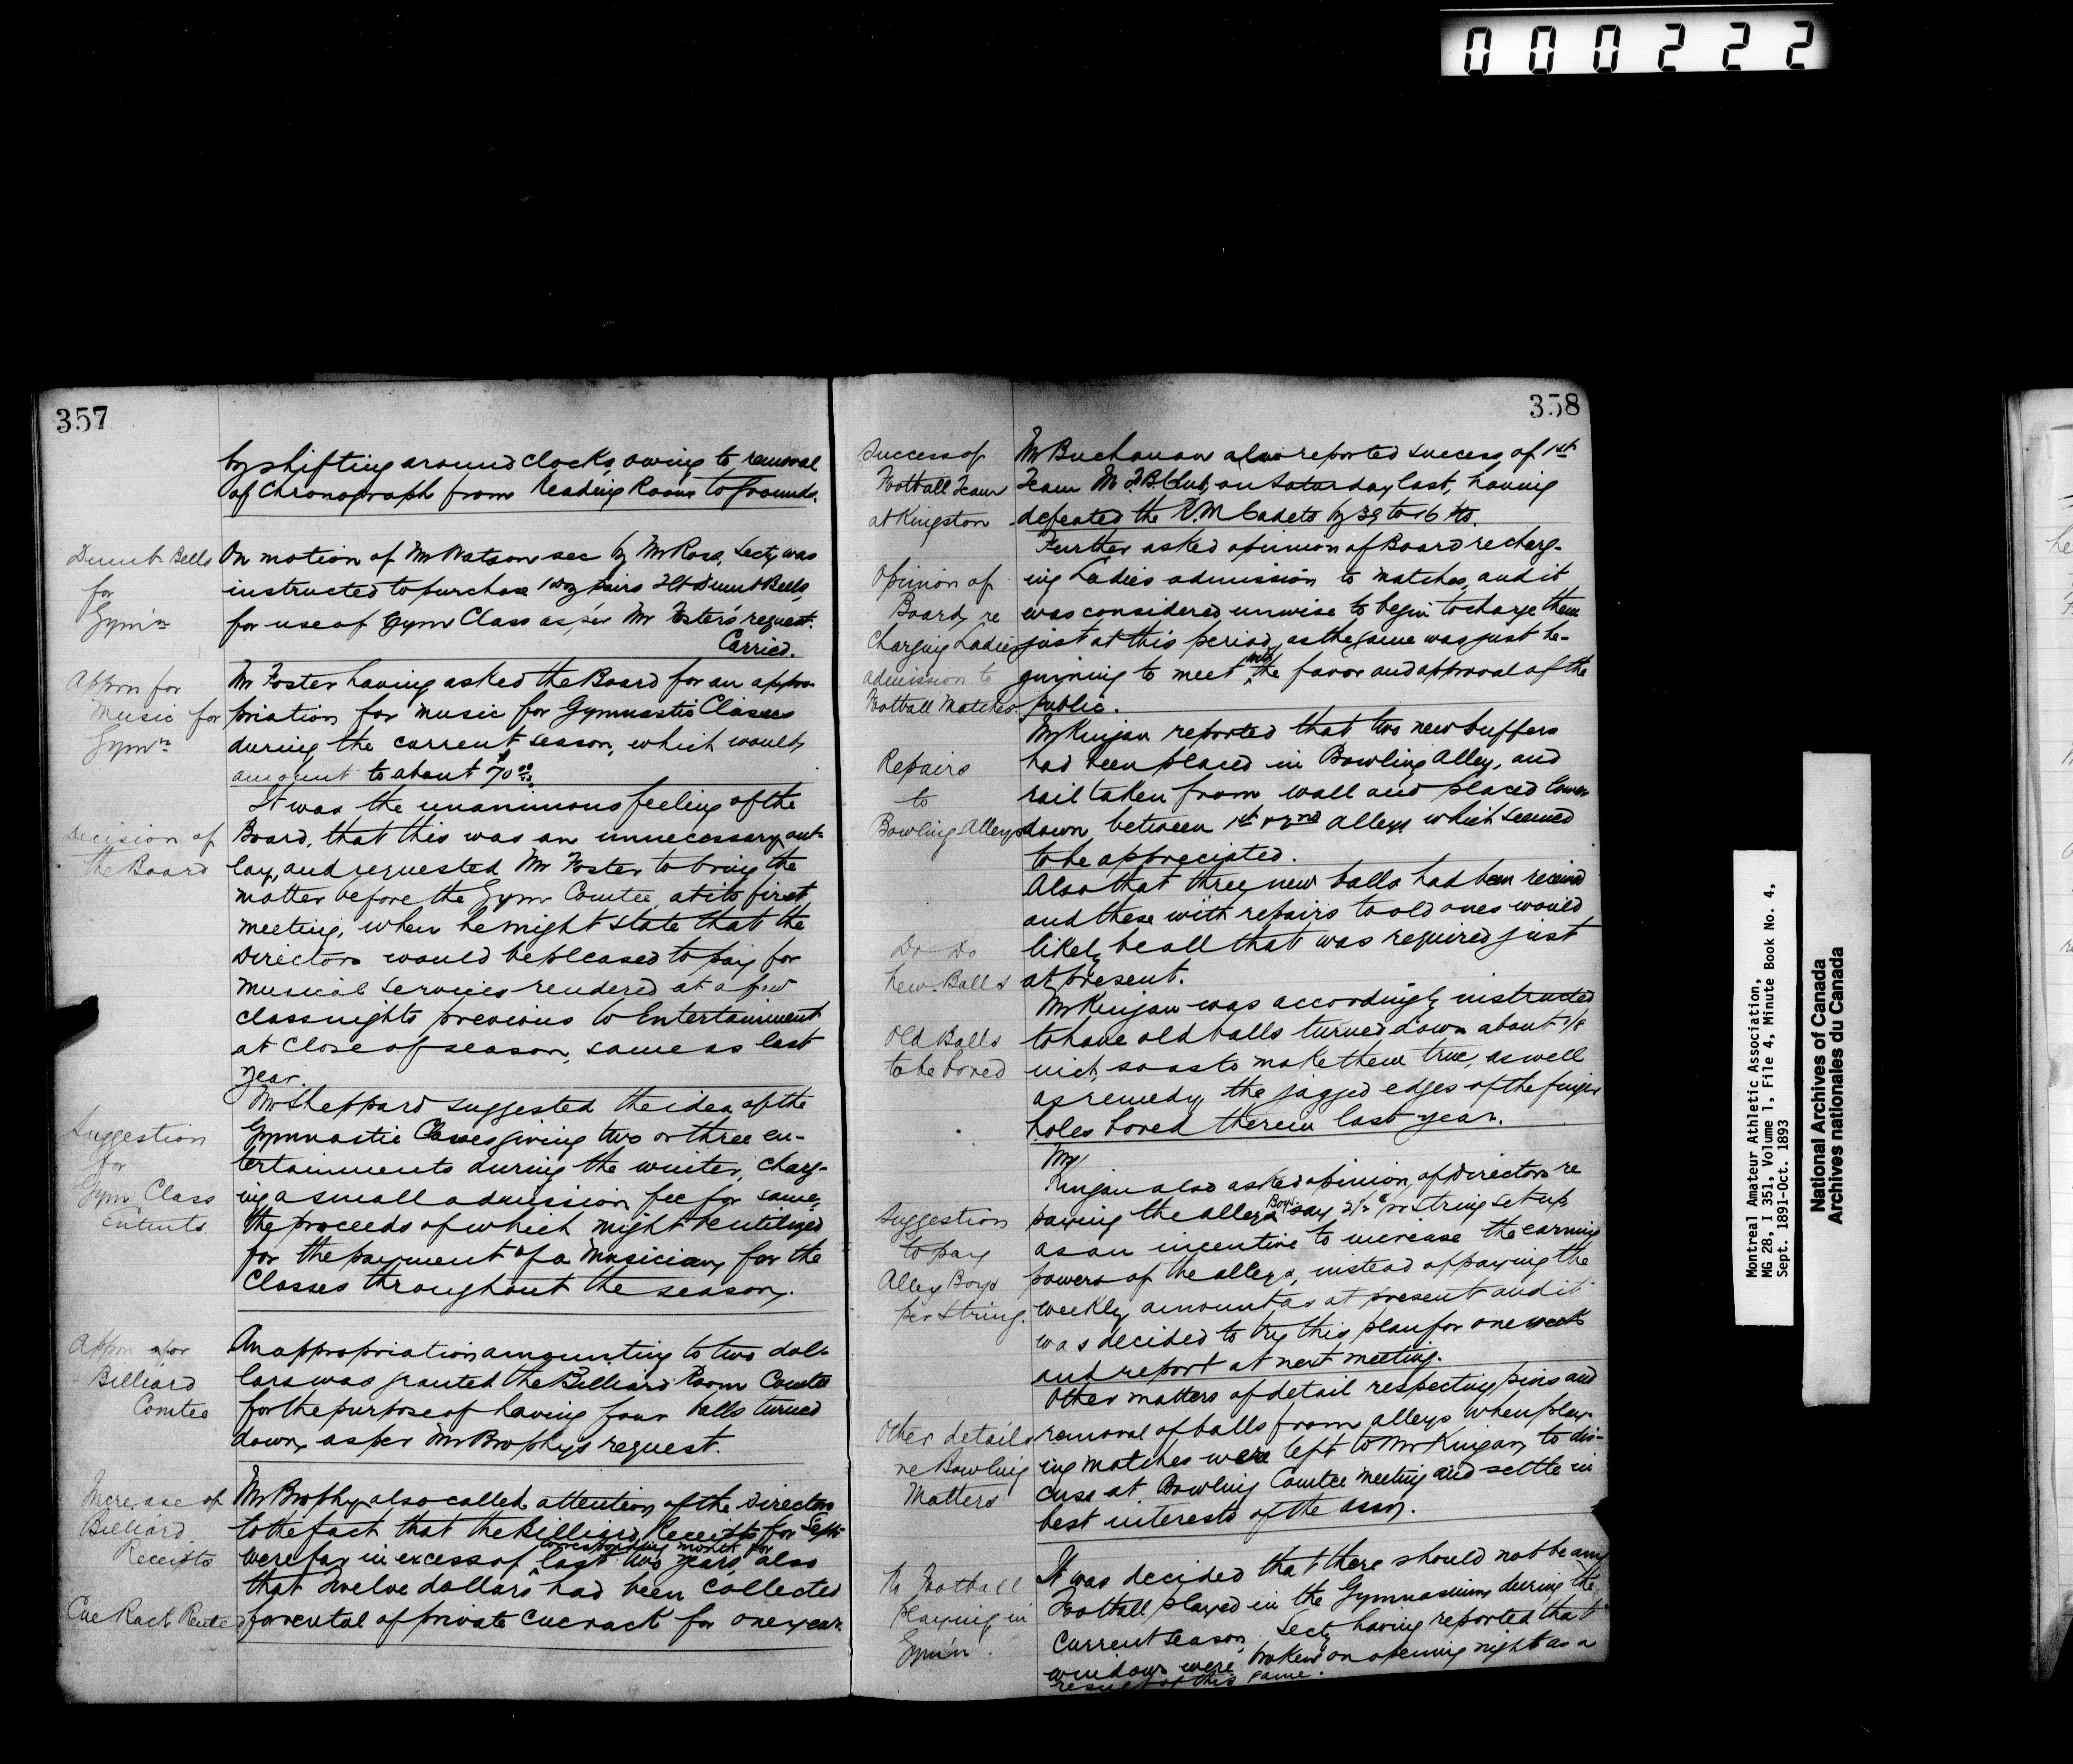 000222
357
by shifting around clocks, owing to removal
of Chronograph from Reading Room to Grounds.
Dumb Bells
for
Gym'n
On motion of Mr Watson sec by Mr Ross, Secty was
instructed to purchase 1 doz pairs Dumb Bells,
for use of Gym Class as per Mr Foster's request.
Carried.
Appn for
Music for
Gymn
Mr Foster having asked the Board for an appro-
priation for music for Gymnastic Classes
during the current season, which would
amount to about $70.00
Decision of
the Board
It was the unanimous feeling of the
Board, that this was an unnecessary out-
lay, and requested Mr Foster to bring the
matter before the Gym Comtee, at its first
meeting, when he might state that the
Directors would be pleased to pay for
musical services rendered at a few
class nights previous to Entertainment
at close of season, same as last
year.
Suggestion
for
Gym Class
Entents.
Mr Sheppard suggested the idea of the
Gymnastic Classes giving two or three en-
tertainments during the winter, charg-
ing a small admission fee for same,
the proceeds of which might be utilized
for the payment of a Musician, for the
Classes throughout the season.
Appn for
Billiard
Comtee
An appropriation amounting to two dol-
lars was granted the Billiard Room Comtee
for the purpose of having four balls turned
down, as per Mr Brophy's request.
Increase of
Billiard
Receipts
Mr Brophy also called attention of the Directors
to the fact that the Billiard Receipts for Sept
were far in excess of corresponding month for last two years, also
that Twelve dollars had been collected
Cue Rack Rented
for rental of private cue rack for one year.
358
Success of
Football Team
at Kingston
Mr Buchanan also reported success of 1st
Team M.F.B. Club, on Saturday last, having
defeated the R.M. Cadets by 39 to 16 pts.
Opinion of
Board, re
Charging Ladies
admission to
Football Matches
Further asked opinion of Board re charg-
ing Ladies admission to matches, and it
was considered unwise to begin to charge them
just at this period, as the game was just be-
ginning to meet with the favor and approval of the
public.
Repairs
to
Bowling Alleys
Mr Kingan reported that two new buffers
had been placed in Bowling Alley, and
rail taken from wall and placed lower
down between 1st & 2nd alleys which seemed
to be appreciated.
Do Do
New Balls
Also that three new balls had been received
and these with repairs to old ones would
likely be all that was required just
at present.
Old Balls
to be bored
Mr Kingan was accordingly instructed
to have old balls turned down about 1/8
inch, so as to make them true, as well
as remedy the jagged edges of the finger
holes bored therein last year.
Suggestion
to pay
Alley Boys
per String.
Mr
Kingan also asked opinion of Directors re
paying the alleys Boys say 2 1/2 c pr string set up
as an incentive to increase the earning
powers of the alleys, instead of paying the
weekly amount as at present and it
was decided to try this plan for one week
and report at next meeting.
Other details
re Bowling
Matters
Other matters of detail respecting pins and
removal of balls from alleys when play-
ing matches were left to Mr Kingan, to dis-
cuss at Bowling Comtee meeting and settle in
best interests of the Assn.
No Football
playing in
Gym'n.
It was decided that there should not be any
Football played in the Gymnasium during the
current season, Secty having reported that
windows were broken on opening night as a
result of this game.
Montreal Amateur Athletic Association,
MG 28, I 351, Volume 1, File 4, Minute Book No. 4,
Sept. 1891-Oct. 1893
National Archives of Canada
Archives nationales du Canada